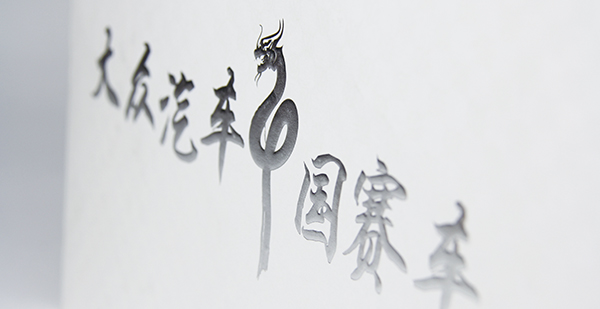 大众汽车中国赛车